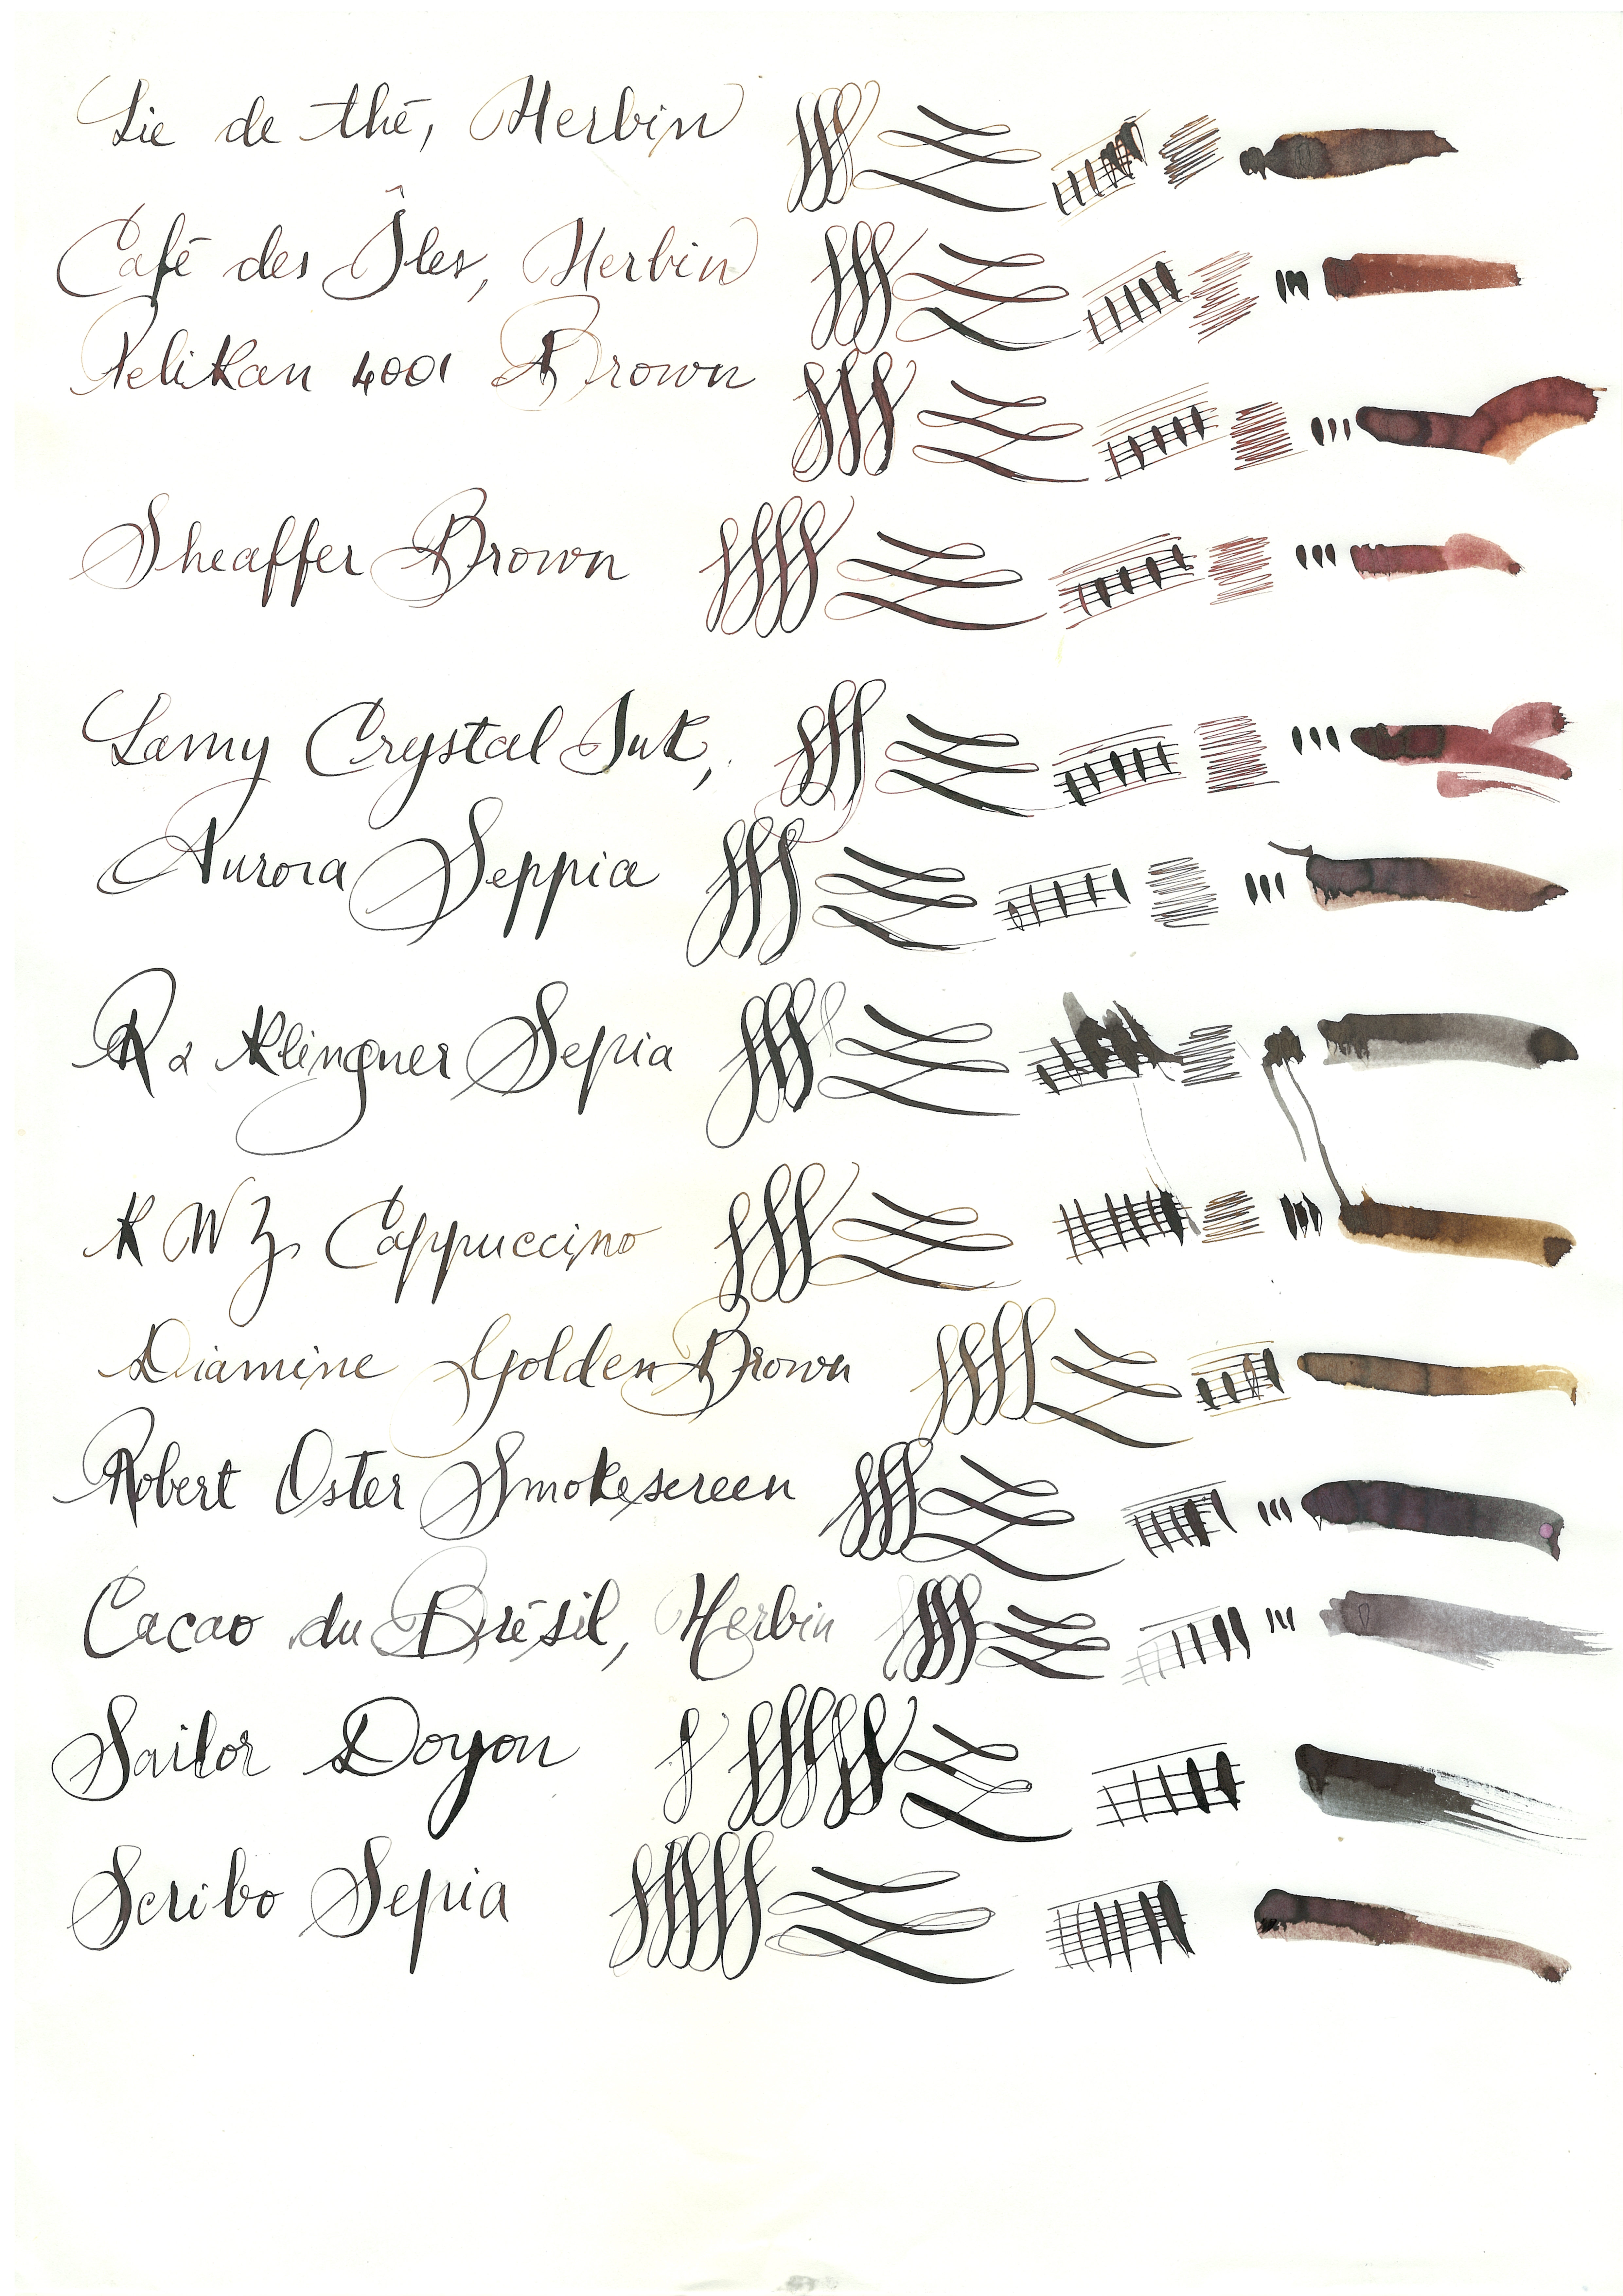 Lie de thé, Herbin
Café des Îles, Herbin
Pelikan 4001 Brown
Sheaffer Brown
Lamy Crystal Ink,
Aurora Seppia
R & Klingner Sepia
KWZ Cappuccino
Diamine Golden Brown
Robert Oster Smokescreen
Cacao du Brésil, Herbin
Sailor Doyou
Scribo Sepia